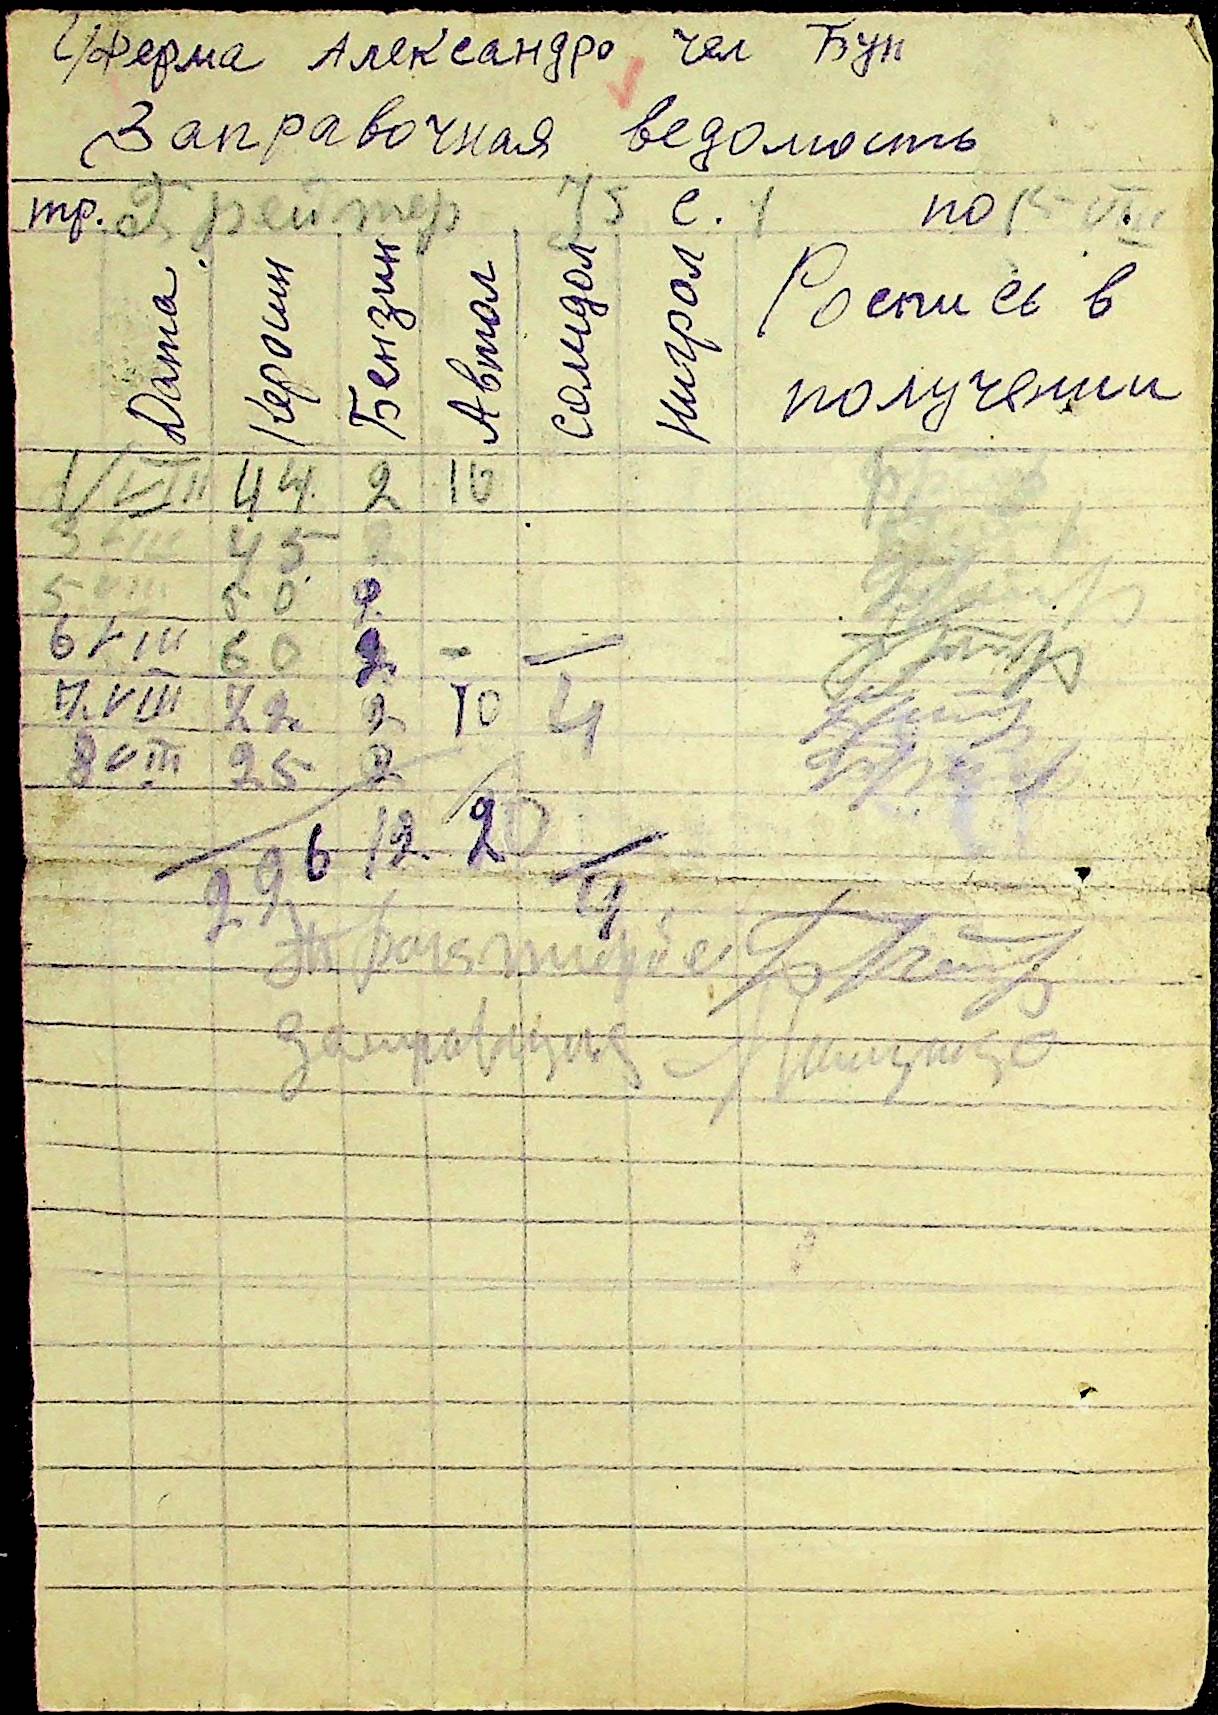 Ферма Александро чел Бун
Заправочная ведомость
тр. Грейтер 75 с. 1 по 15 VIII
Дата Керосин Бензин Автол Солидол Нигрол Роспись в
получении
1/VIII 44 2 10
3 VIII 45 2
5 VIII 50 2
6 VIII 60 2 - —
7 VIII 72 2 10 4
8 VIII 25 2
296 12 20 4
Заправщик